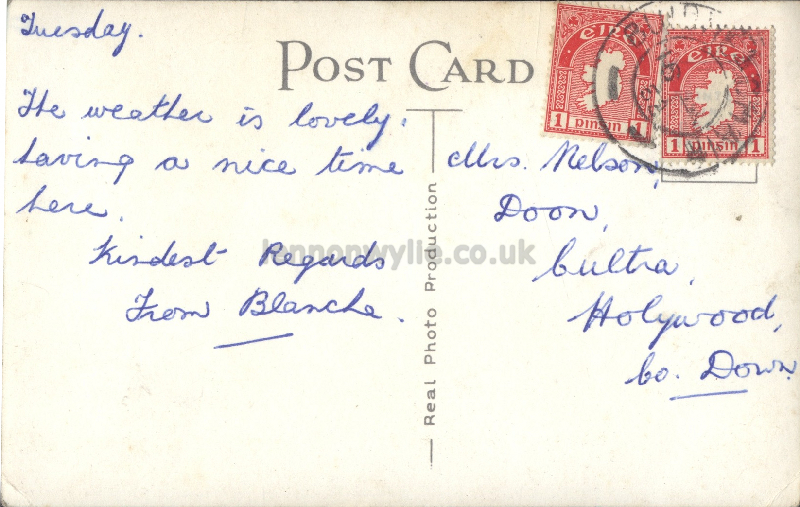 Tuesday.
POST CARD
The weather is lovely.
having a nice time
here.
Kindest Regards
From Blanche.
Mrs. Nelson,
Doon,
Cultra,
Holywood,
Co. Down.
Real Photo Production
eire
1 pinsin 1
eire
1 pinsin 1
lennonwylie.co.uk